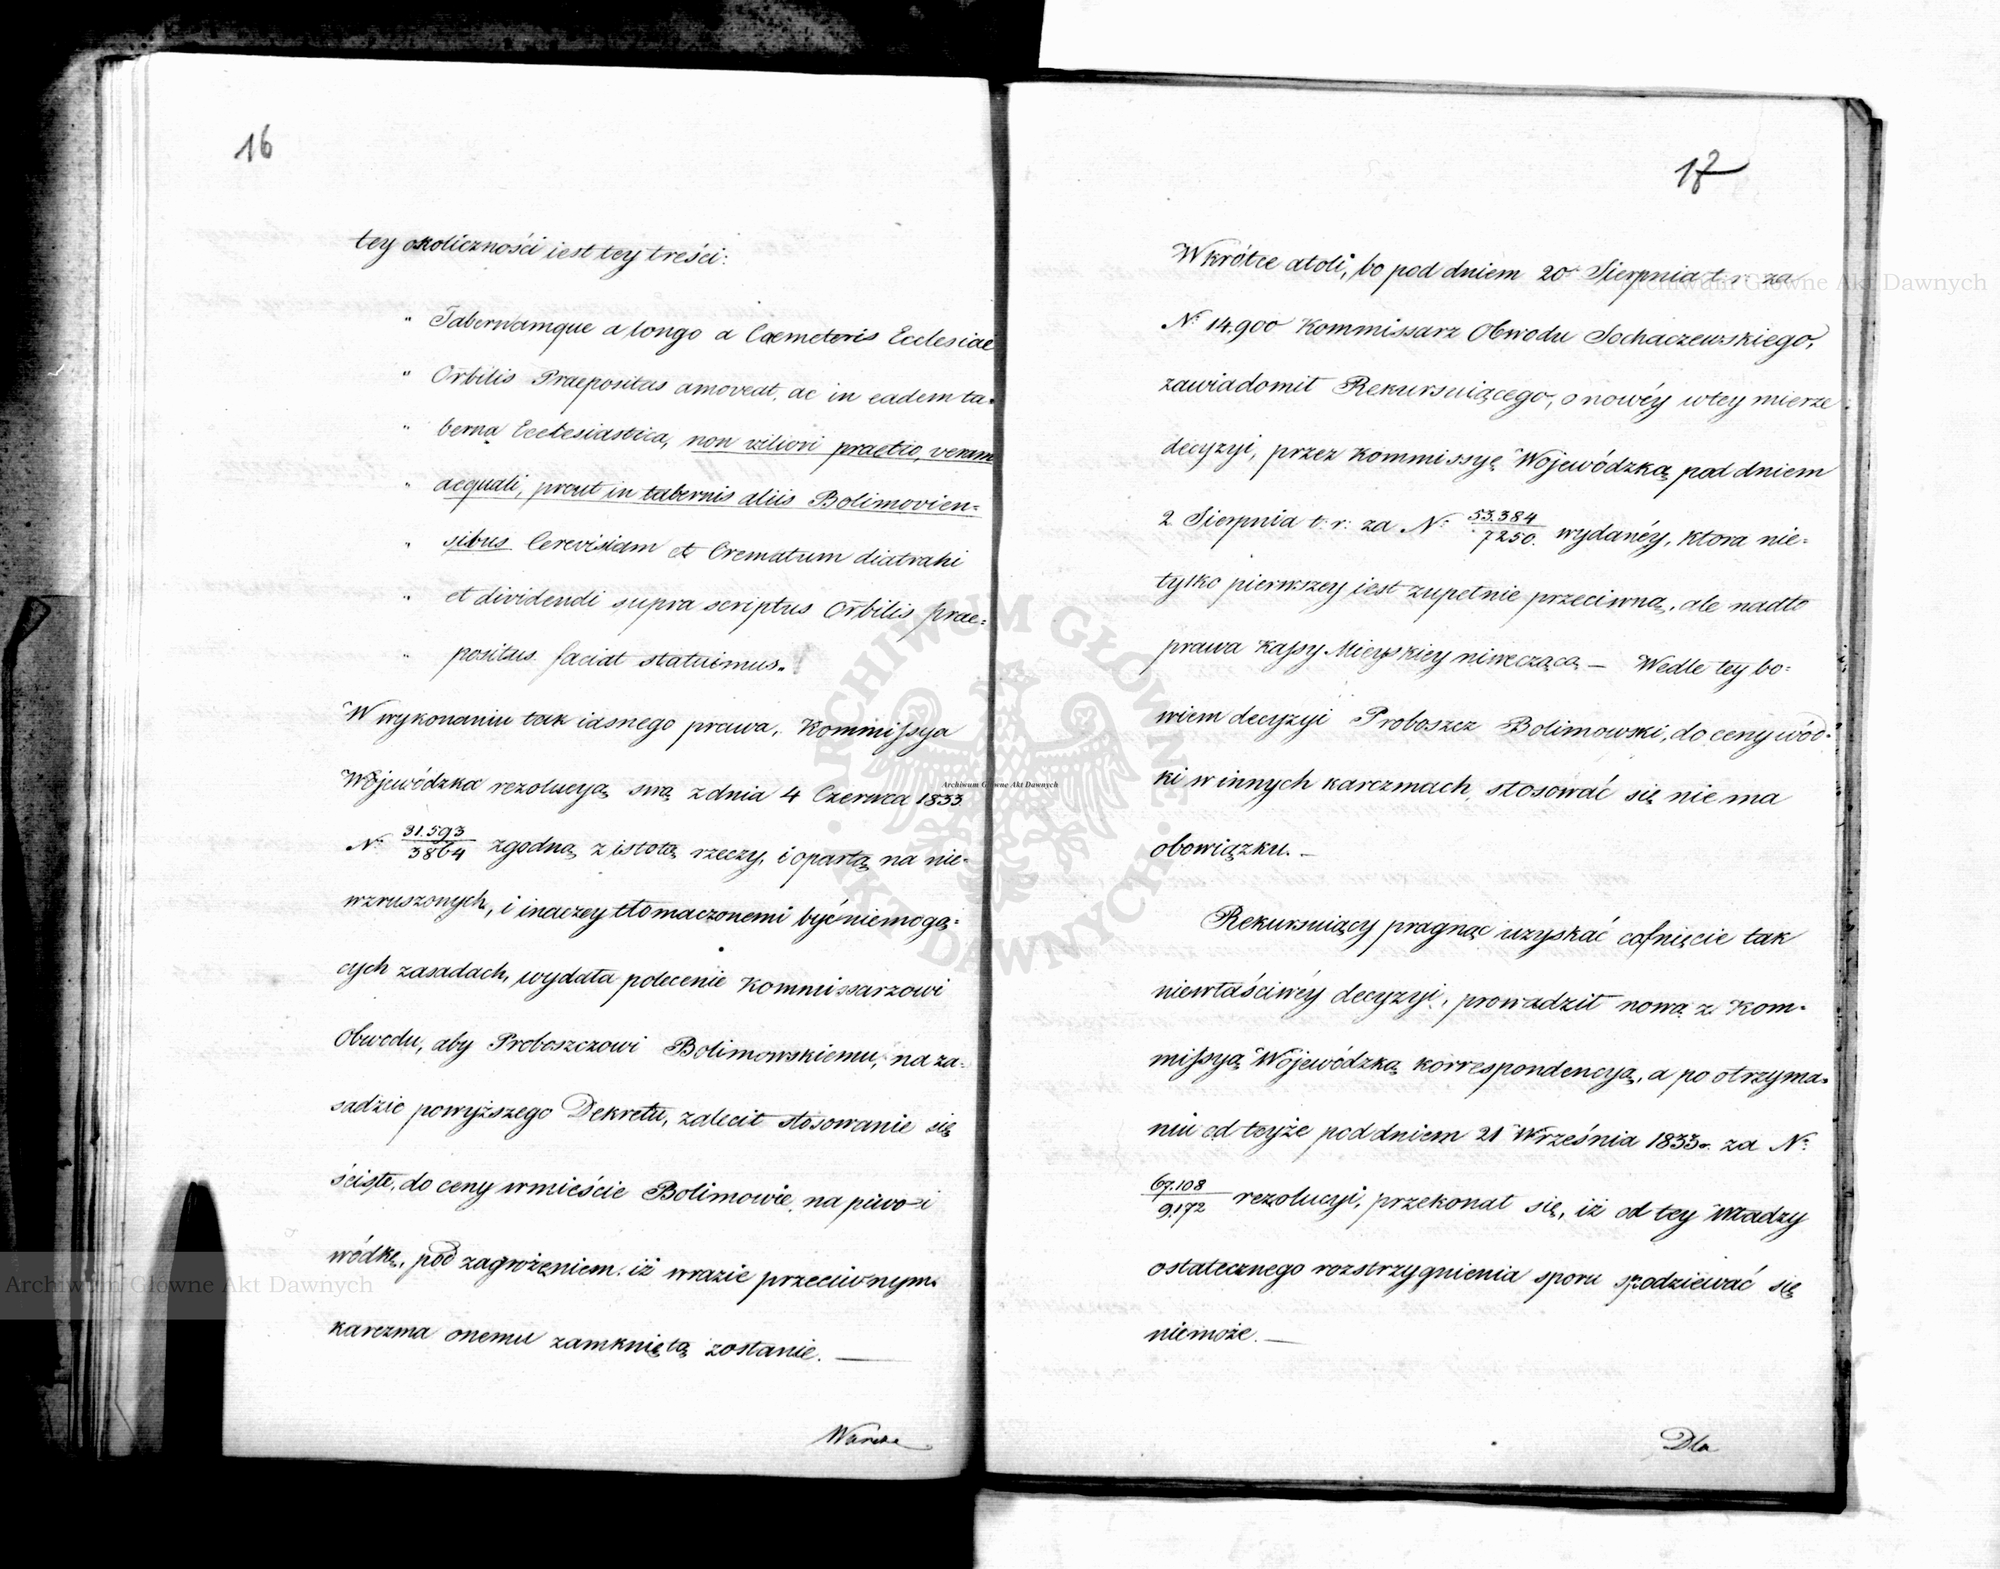 16
tey okoliczności iest tey treści:
" Tabernamque a longo a Caemeteris Ecclesiae
" Orbilis Praepositus amoveat, ac in eadem ta-
" berna Ecclesiastica, non viliori praetio, verum
" aequali, prout in tabernis aliis Bolimovien-
" sibus Cerevisiam et Crematum distrahi
" et dividendi supra scriptus Orbilis prae-
" positus faciat statuimus„
W wykonaniu tak iasnego prawa, Kommissya
Wojewódzka rezolucyą swą z dnia 4 Czerwca 1833
N: 31.593/3864 zgodną z istotą rzeczy, i opartą na nie-
wzruszonych, i inaczey tłomaczonemi być niemogą-
cych zasadach, wydała polecenie Kommissarzowi
Obwodu, aby Proboszczowi Bolimowskiemu, na za-
sadzie powyższego Dekretu, zalecił stosowanie się
ściśle, do ceny w mieście Bolimowie, na piwo i
wódkę, pod zagrożeniem, iż w razie przeciwnym
karczma onemu zamkniętą zostanie. —
17
Wkrótce atoli, bo pod dniem 20 Sierpnia t. r. za
N: 14.900 Kommissarz Obwodu Sochaczewskiego,
zawiadomił Rekursuiącego, o nowéy w tey mierze
decyzyi, przez Kommissyę Wojewódzką pod dniem
2 Sierpnia t: r: za N: 53.384/7250. wydanéy, ktora nie-
tylko pierwszey iest zupełnie przeciwną, ale nadto
prawa Kassy Mieyskiey niweczącą — Wedle tey bo-
wiem decyzyi Proboszcz Bolimowski, do ceny wód-
ki w innych karczmach, stosować się nie ma
obowiązku. —
Rekursuiący pragnąc uzyskać cofnięcie tak
niewłaściwéy decyzyi, prowadził nową z Kom-
missyą Wojewódzką korrespondencyą, a po otrzyma-
niu od teyże pod dniem 21 Września 1833 r. za N:
67.108/9172 rezolucyi, przekonał się, iż od tey Władzy
ostatecznego rozstrzygnienia sporu spodziewać się
niemoże. —
Dla
Archiwum Główne Akt Dawnych
ARCHIWUM GŁÓWNE AKT DAWNYCH
Archiwum Główne Akt Dawnych
Archiwum Główne Akt Dawnych